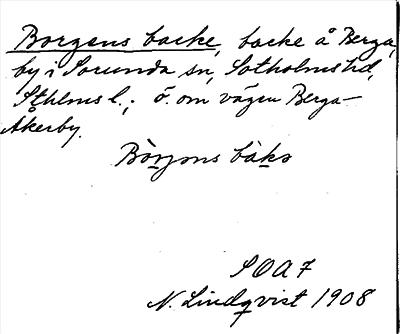 Borgens backe, backe å Berga,
by i Sorunda sn, Sotholms hd,
Sthlms l.; ö. om vägen Berga–
Åkerby.
Bòrjens bàkə
SOA 7
N. Lindqvist 1908